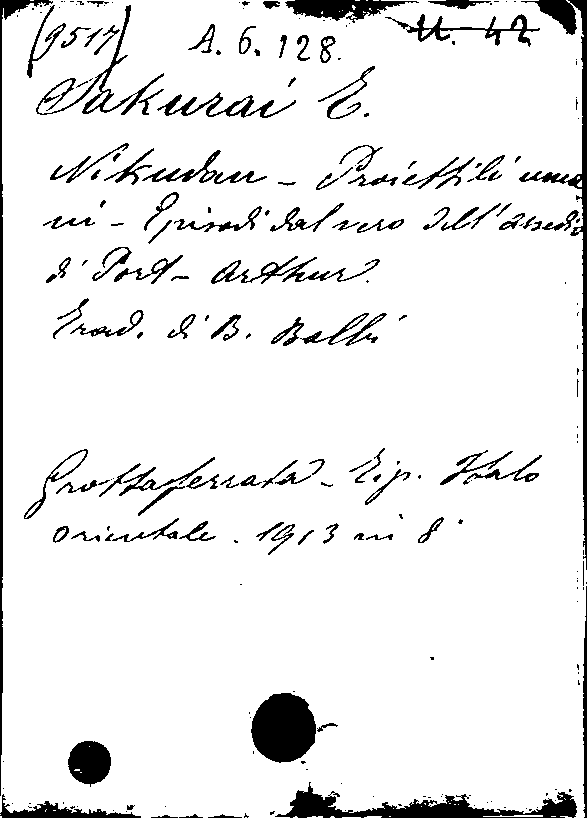 (9517) A. 6. 128. U. 42
Sakurai E.
Nikudan - Proiettili uma
ni - Episodi dal vero dell'assedio
di Port-Arthur.
Trad. di B. Balbi
Grottaferrata - Tip. Italo
orientale. 1913 in 8°